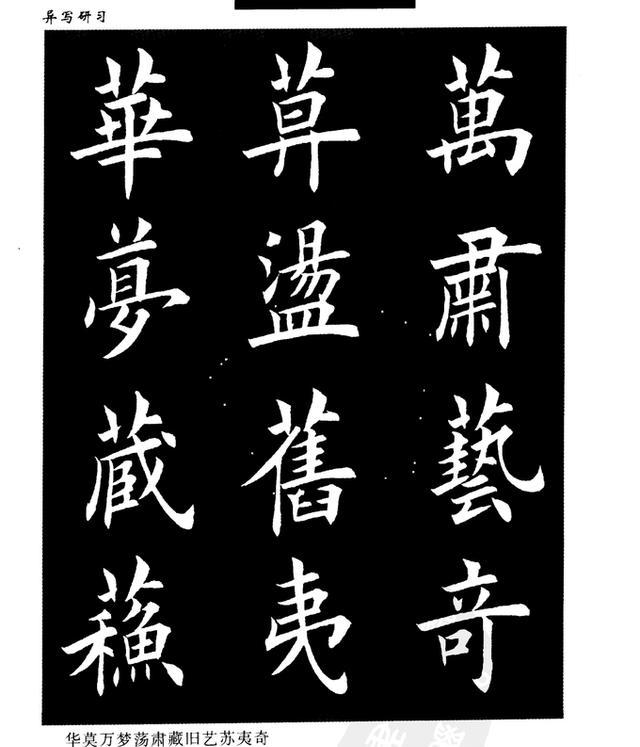 异写研习
華莫萬
夢盪肅
蔵舊藝
蘓夷奇
华莫万梦荡肃藏旧艺苏夷奇